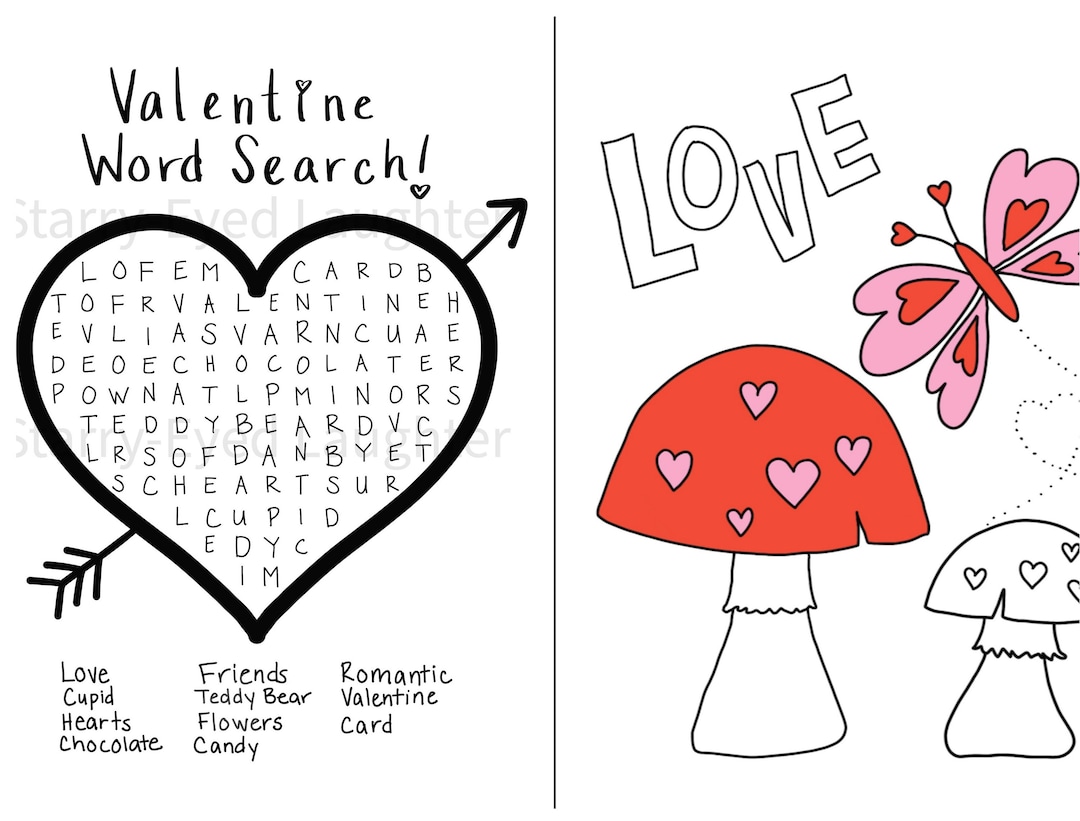 Valentine
Word Search!
Starry-Eyed Laughter
L O F E M C A R D B
T O F R V A L E N T I N E H
E V L I A S V A R N C U A E
D E O E C H O C O L A T E R
P O W N A T L P M I N O R S
T E D D Y B E A R D V C
Starry-Eyed Laughter
L R S O F D A N B Y E T
S C H E A R T S U R
L C U P I D
E D Y C
I M
Love
Cupid
Hearts
Chocolate
Friends
Teddy Bear
Flowers
Candy
Romantic
Valentine
Card
LOVE